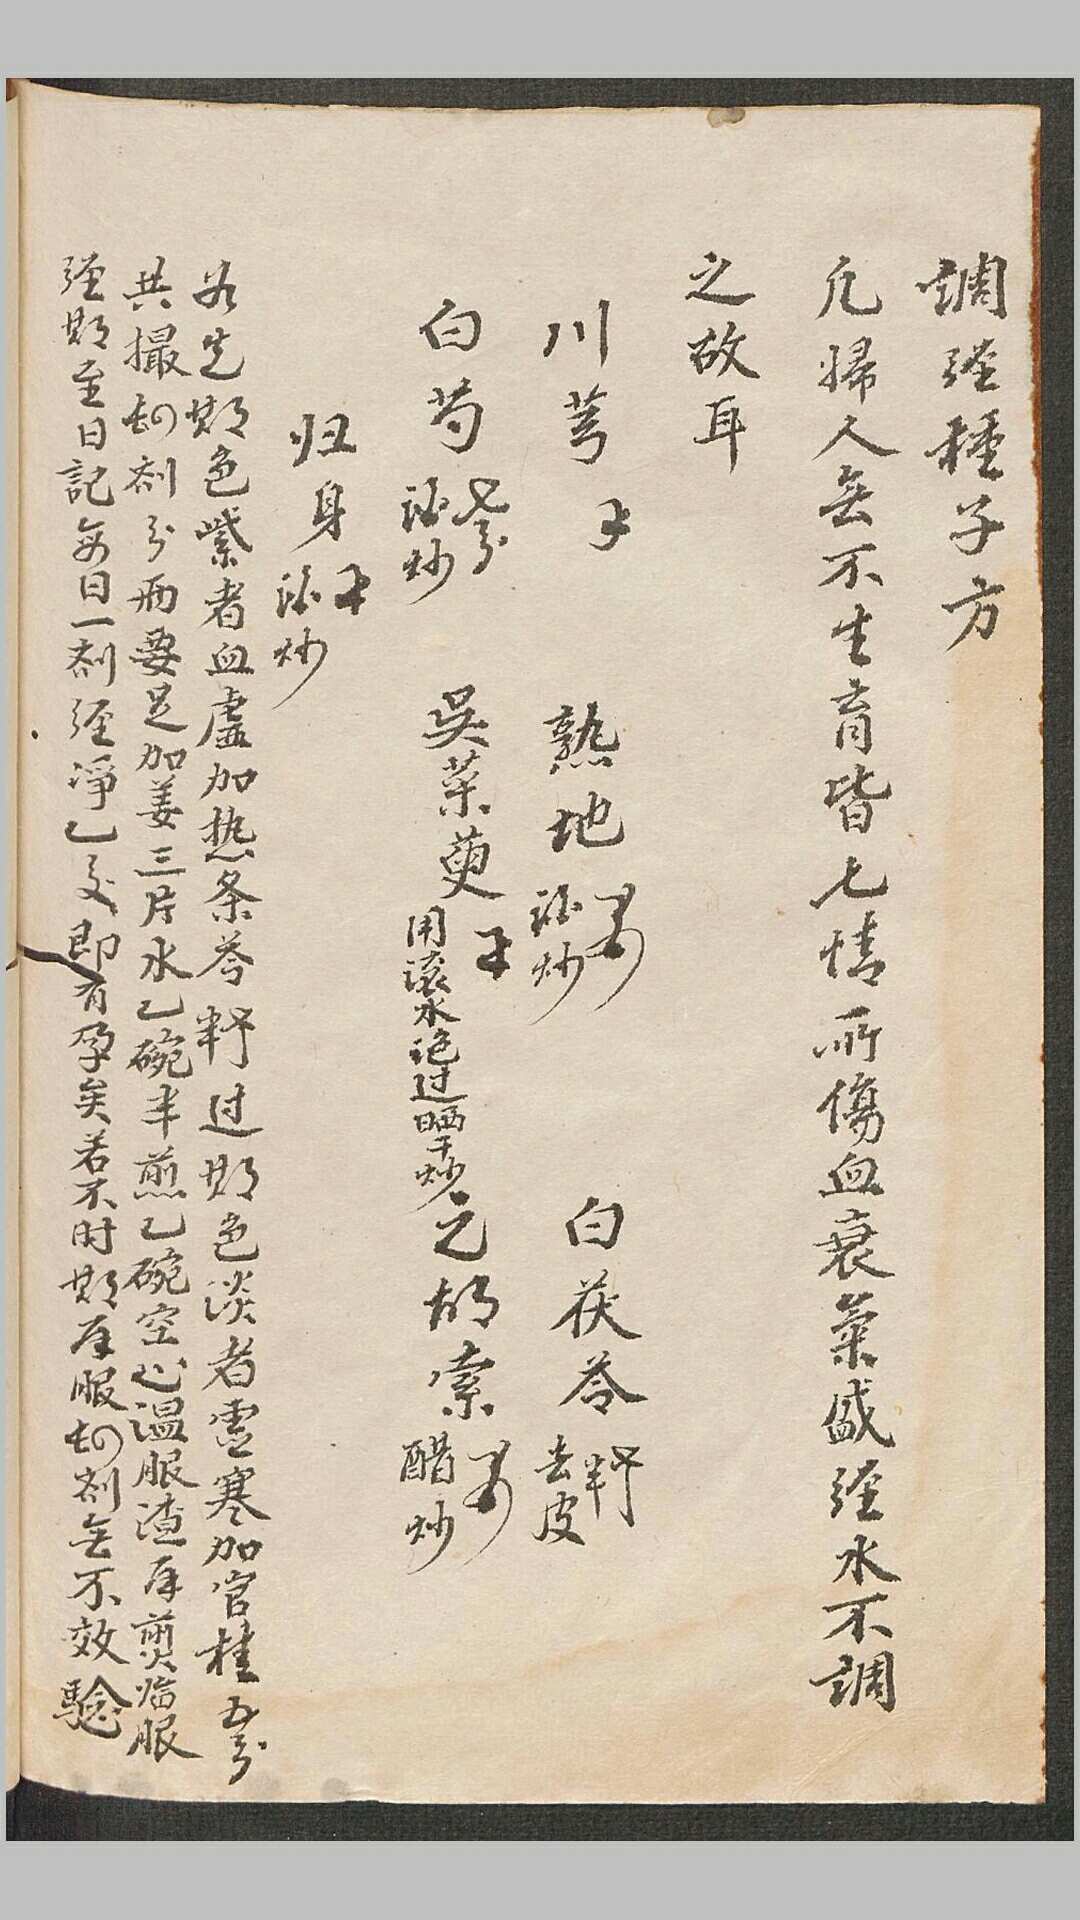 調經種子方
凡婦人無不生育皆七情所傷血衰氣盛經水不調
之故耳
川芎 熟地 酒炒 白茯苓 去皮
白芍 七分 酒炒 吳茱萸 用滚水泡过晒干炒 元胡索 醋炒
归身 酒炒
若先期色紫者血虛加热条芩 过期色淡者虛寒加官桂五分
共撮四剂分两要足加姜三片水乙碗半煎乙碗空心温服渣再煎临服
經期至日記每日一剂經凈乙交即有孕矣若不时期再服四剂無不效驗